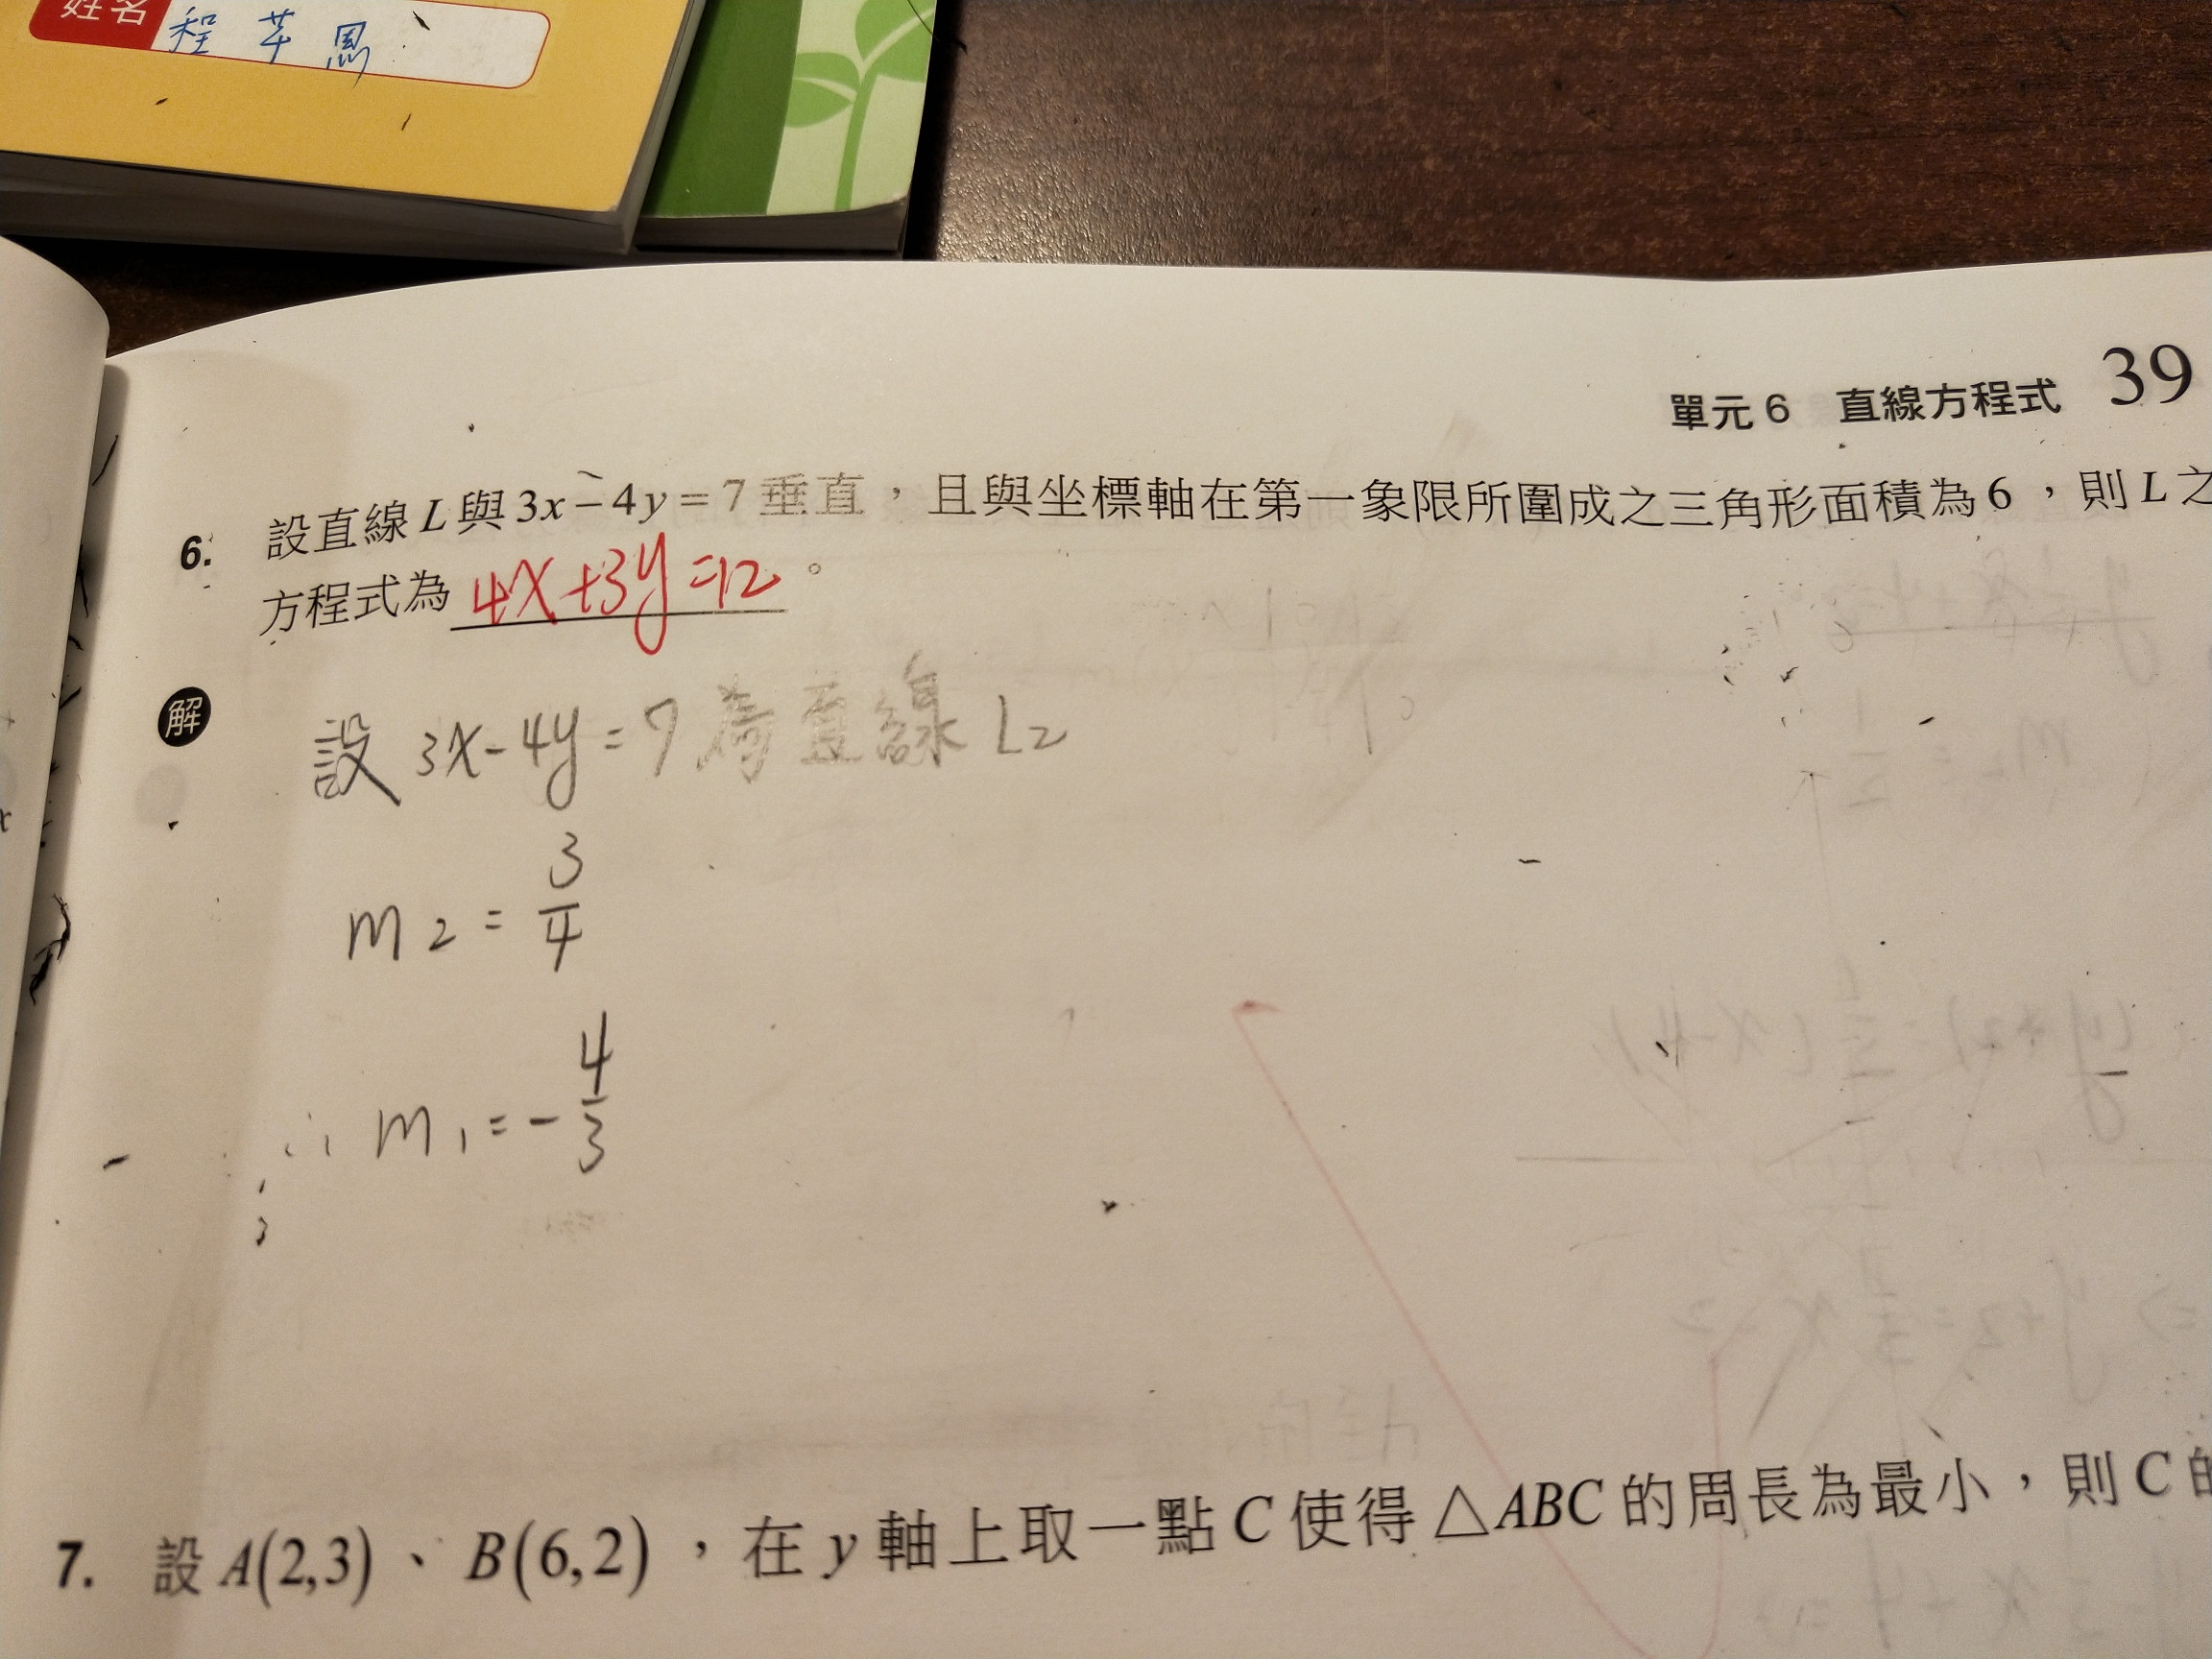 姓名 程芊恩
單元 6 直線方程式 39
6. 設直線 L 與 3x－4y＝7 垂直，且與坐標軸在第一象限所圍成之三角形面積為 6，則 L 之
方程式為 4x+3y=12 。
解
設 3x-4y=7 為直線 L2
m2 = 3/4
∴ m1 = -4/3
7. 設 A(2,3)、B(6,2)，在 y 軸上取一點 C 使得 △ABC 的周長為最小，則 C 的